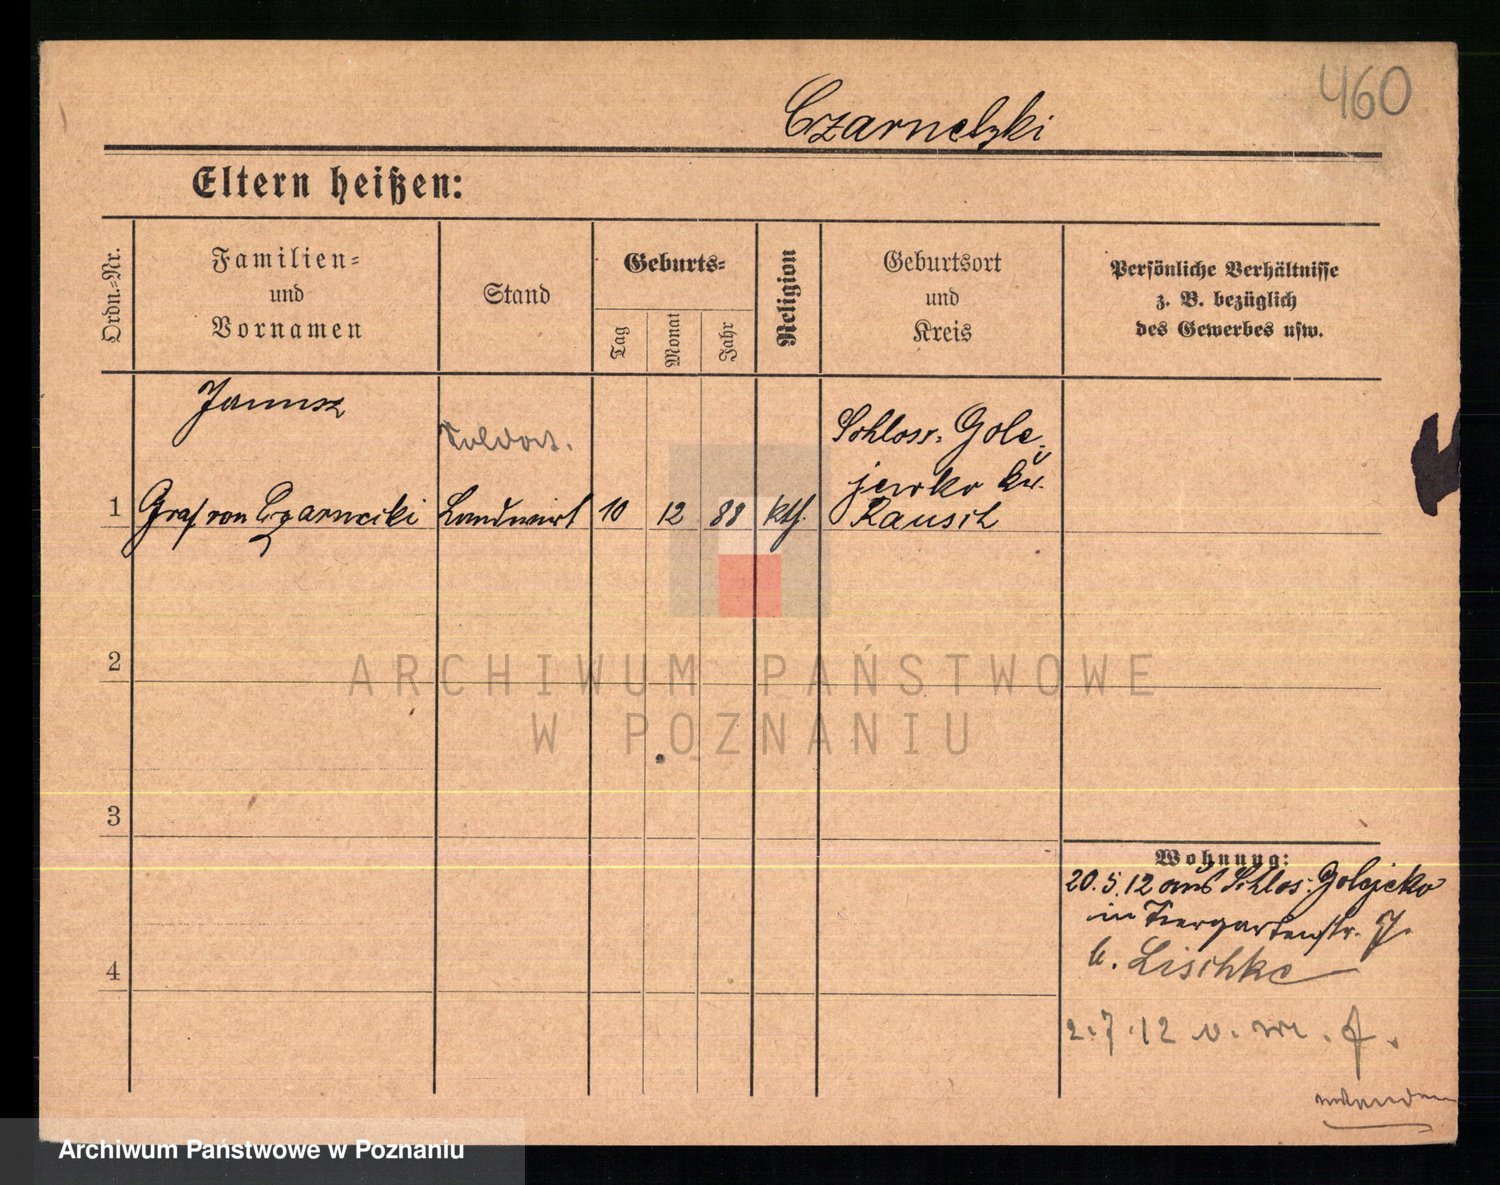 460
Czarnetzki
Eltern heißen:
Ordn.-Nr.
Familien-
und
Vornamen
Stand
Geburts-
Tag
Monat
Jahr
Religion
Geburtsort
und
Kreis
Persönliche Verhältnisse
z. B. bezüglich
des Gewerbes usw.
Janusz
Soldat.
Schloss-Gole-
jewko Kr.
1 Graf von Czarnecki Landwirt 10 12 88 kth. Rawsch
2
ARCHIWUM PAŃSTWOWE
W POZNANIU
3
Wohnung:
20. 5. 12 aus Schlos: Golejewko
in Tiergartenstr. 7.
4
b. Lischke
2. 7. 12 v.
Archiwum Państwowe w Poznaniu